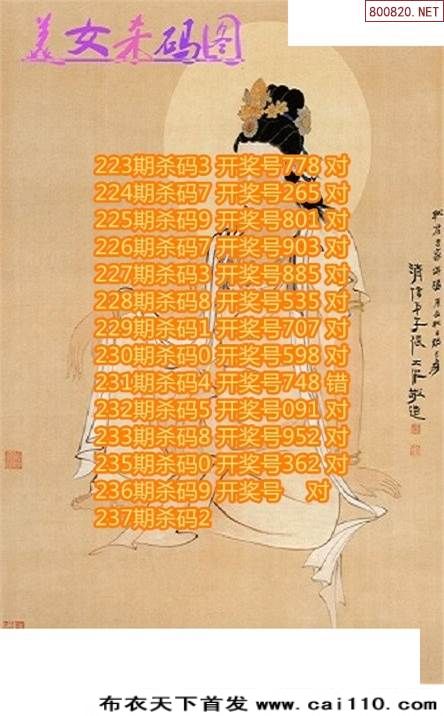 800820.NET
美女杀码图
223期杀码3 开奖号778 对
224期杀码7 开奖号265 对
225期杀码9 开奖号801 对
226期杀码7 开奖号903 对
227期杀码3 开奖号885 对
228期杀码8 开奖号535 对
229期杀码1 开奖号707 对
230期杀码0 开奖号598 对
231期杀码4 开奖号748 错
232期杀码5 开奖号091 对
233期杀码8 开奖号952 对
235期杀码0 开奖号362 对
236期杀码9 开奖号 对
237期杀码2
布衣天下首发 www.cai110.com